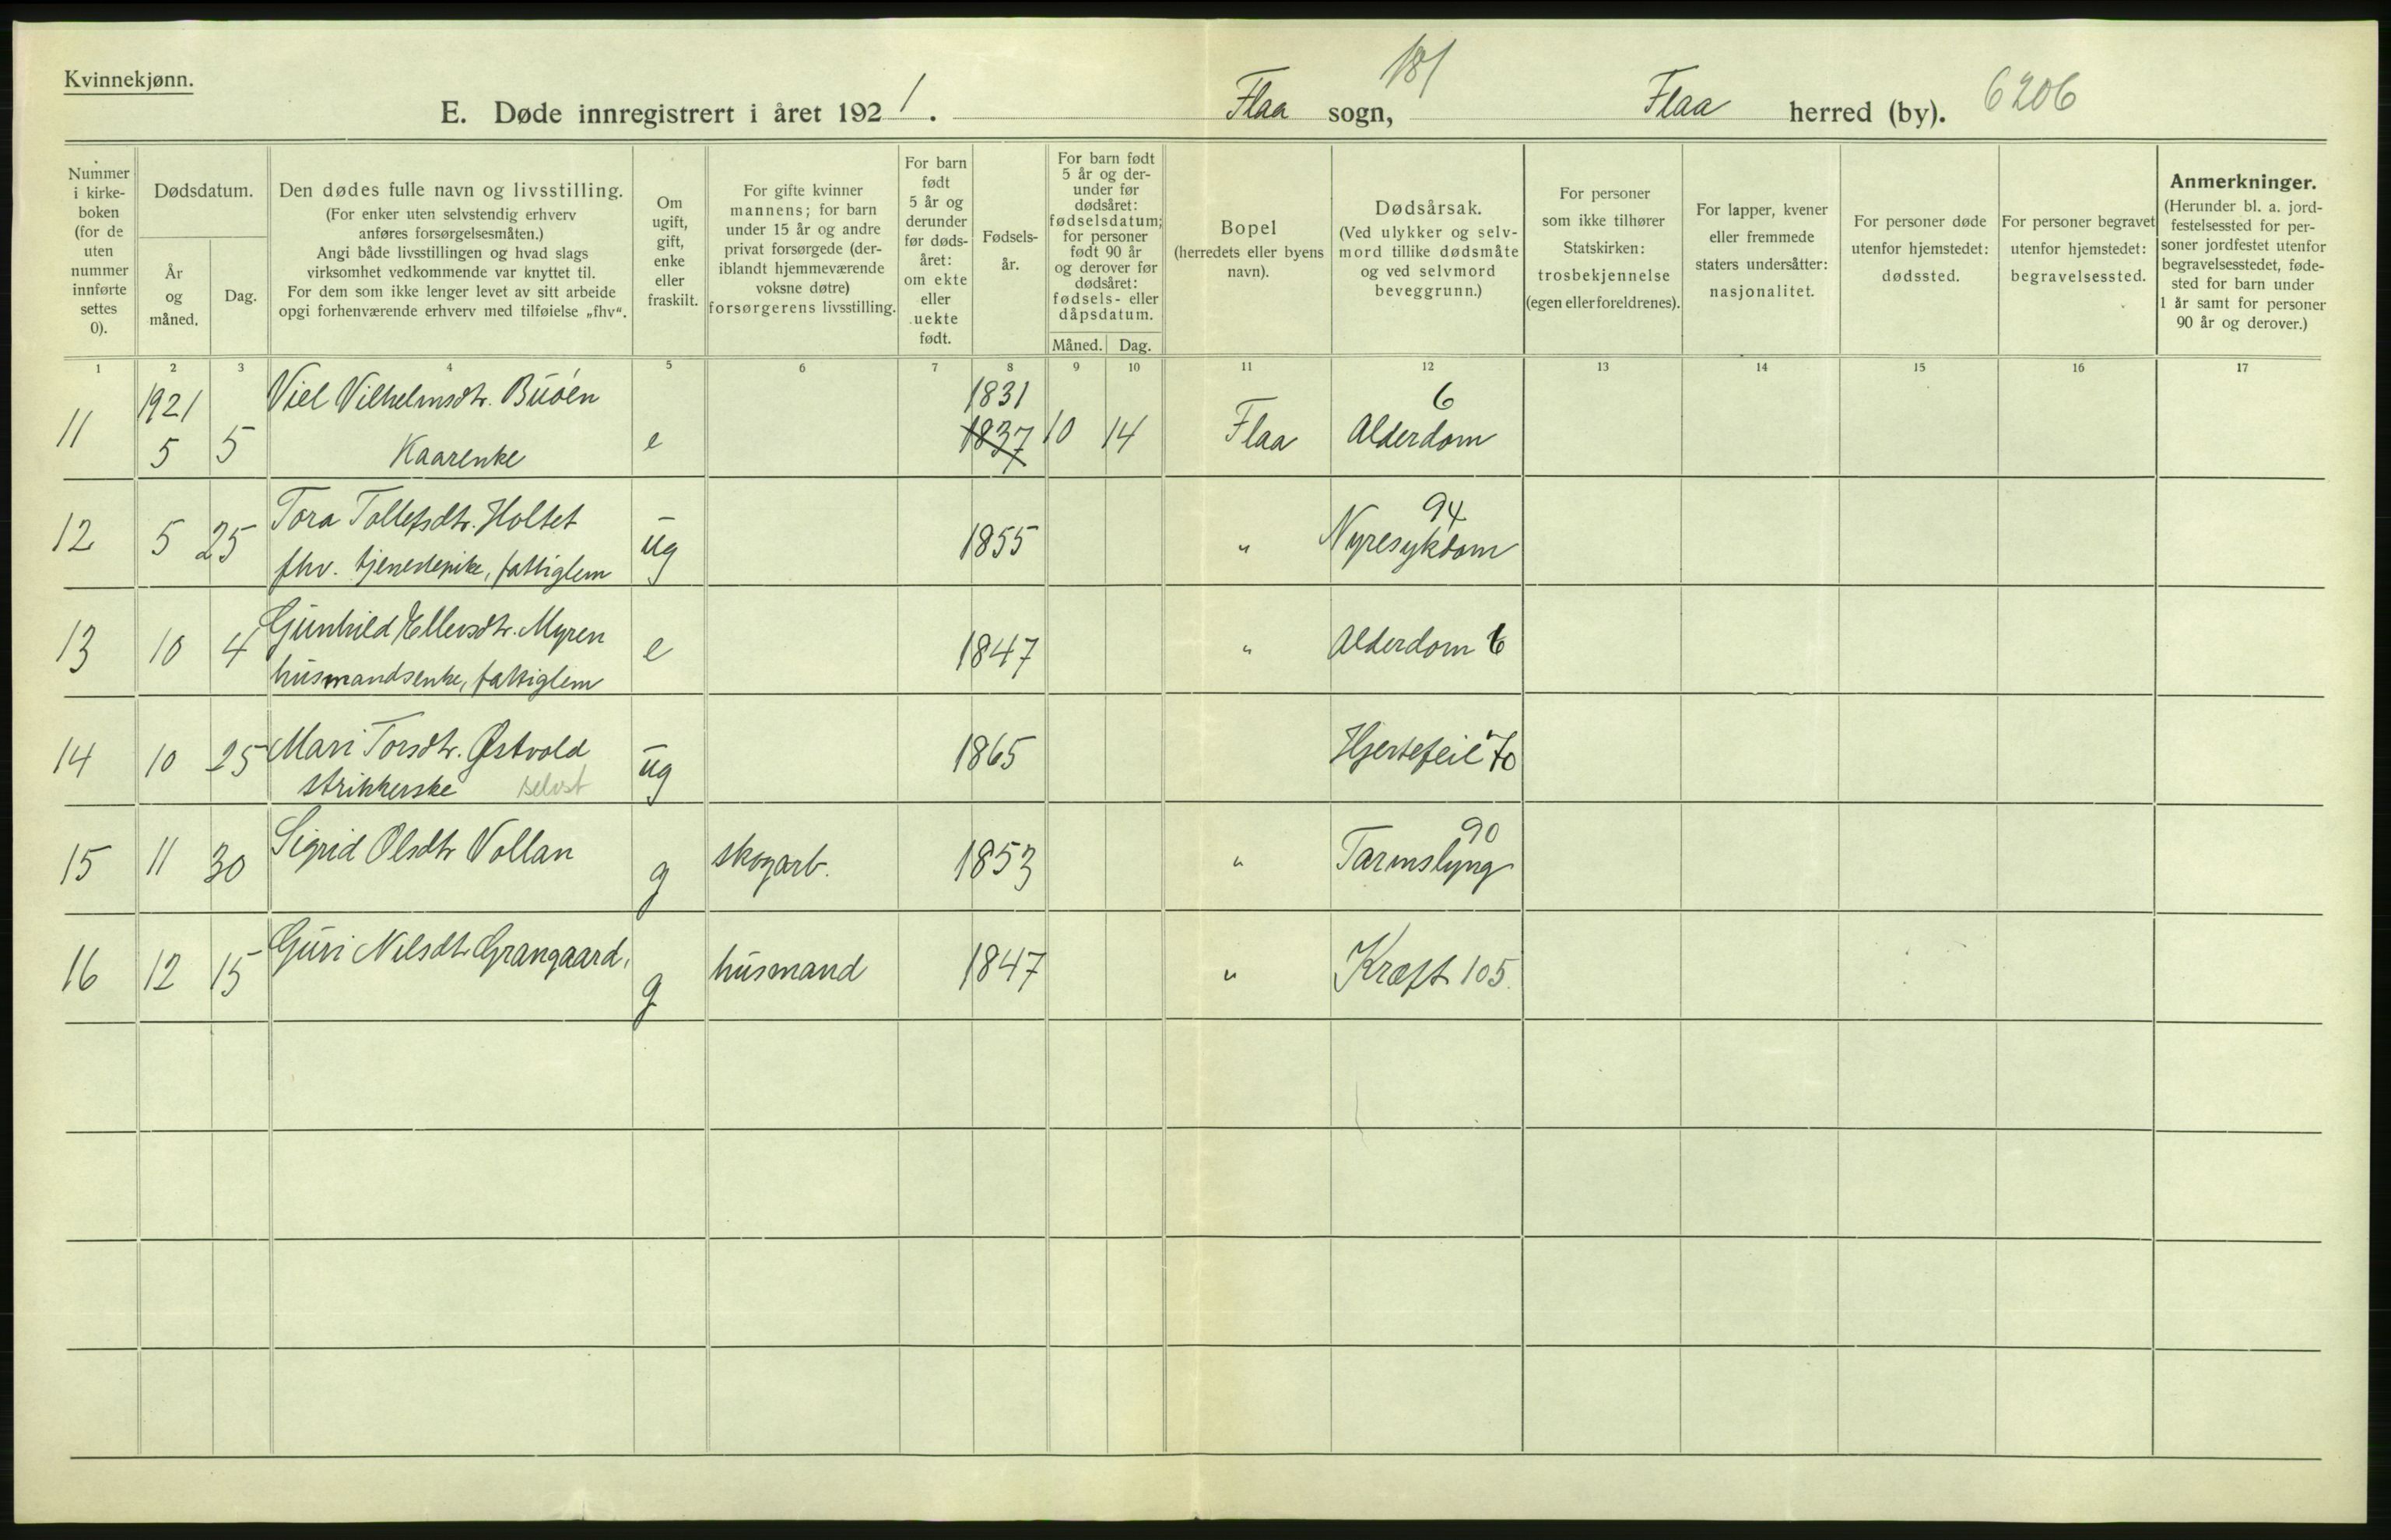 Kvinnekjønn.
181
E. Døde innregistrert i året 1921. Flaa sogn, Flaa herred (by). 6206
Nummer
i kirke-
boken
(for de
uten
nummer
innførte
settes
0).
Dødsdatum.
År
og
måned.
Dag.
Den dødes fulle navn og livsstilling.
(For enker uten selvstendig erhverv
anføres forsørgelsesmåten.)
Angi både livsstillingen og hvad slags
virksomhet vedkommende var knyttet til.
For dem som ikke lenger levet av sitt arbeide
opgi forhenværende erhverv med tilføielse „fhv“.
Om
ugift,
gift,
enke
eller
fraskilt.
For gifte kvinner
mannens; for barn
under 15 år og andre
privat forsørgede (der-
iblandt hjemmeværende
voksne døtre)
forsørgerens livsstilling.
For barn
født
5 år og
derunder
før døds-
året:
om ekte
eller
uekte
født.
Fødsels-
år.
For barn født
5 år og der-
under før
dødsåret:
fødselsdatum;
for personer
født 90 år
og derover før
dødsåret:
fødsels- eller
dåpsdatum.
Måned. Dag.
Bopel
(herredets eller byens
navn).
Dødsårsak.
(Ved ulykker og selv-
mord tillike dødsmåte
og ved selvmord
beveggrunn.)
For personer
som ikke tilhører
Statskirken:
trosbekjennelse
(egen eller foreldrenes).
For lapper, kvener
eller fremmede
staters undersåtter:
nasjonalitet.
For personer døde
utenfor hjemstedet:
dødssted.
For personer begravet
utenfor hjemstedet:
begravelsessted.
Anmerkninger.
(Herunder bl. a. jord-
festelsessted for per-
soner jordfestet utenfor
begravelsesstedet, føde-
sted for barn under
1 år samt for personer
90 år og derover.)
1 2 3 4 5 6 7 8 9 10 11 12 13 14 15 16 17
1921 Viel Vilhelmsdtr. Buøen 1831 6
11 5 5 Kaarenke e 1837 10 14 Flaa Alderdom
Tora Tollefsdtr. Holtet 94
12 5 25 fhv. tjenestepike, fattiglem ug 1855 " Nyresykdom
Gunhild Ellevsdtr. Myren
13 10 4 husmandsenke, fattiglem e 1847 " Alderdom 6
Mari Torsdtr. Østvold
14 10 25 strikkerske selvst ug 1865 Hjertefeil 70
90
15 11 30 Sigrid Olsdtr Vollan g skogarb. 1853 " Tarmslyng
16 12 15 Guri Nilsdtr Grangaard, g husmand 1847 " Kræft 105.